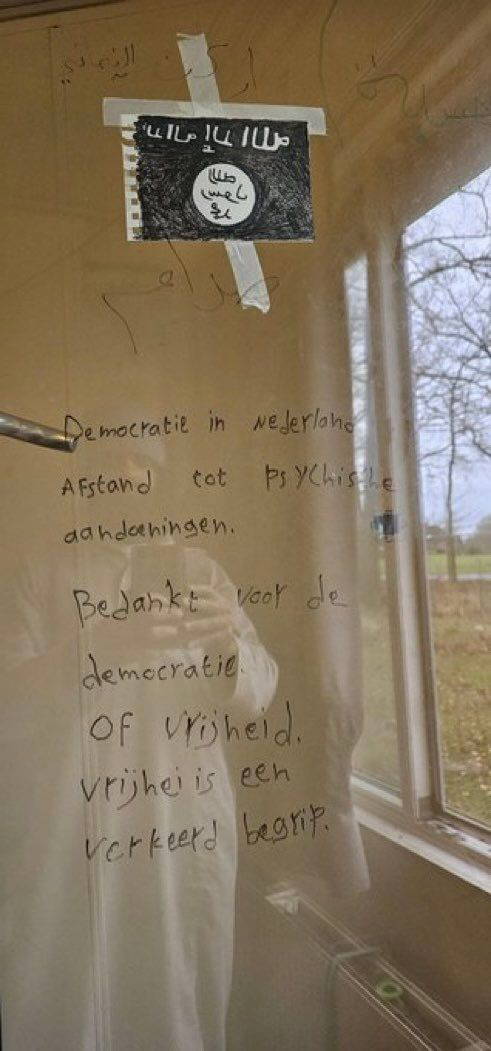 لا اله الا الله
الله
رسول
محمد
Democratie in Nederland
Afstand tot psychische
aandoeningen.
Bedankt voor de
democratie.
OF vrijheid.
vrijhei is een
verkeerd begrip.